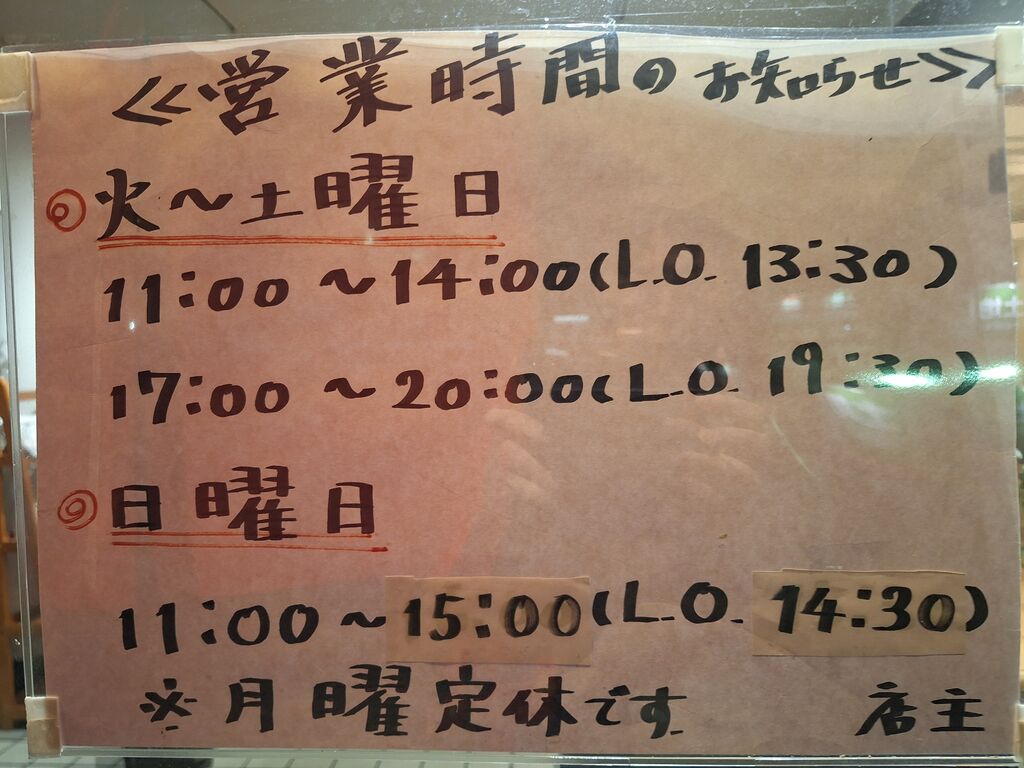 ≪営業時間のお知らせ≫
◎火～土曜日
11:00～14:00(L.O. 13:30)
17:00～20:00(L.O. 19:30)
◎日曜日
11:00～15:00(L.O. 14:30)
※月曜定休です 店主